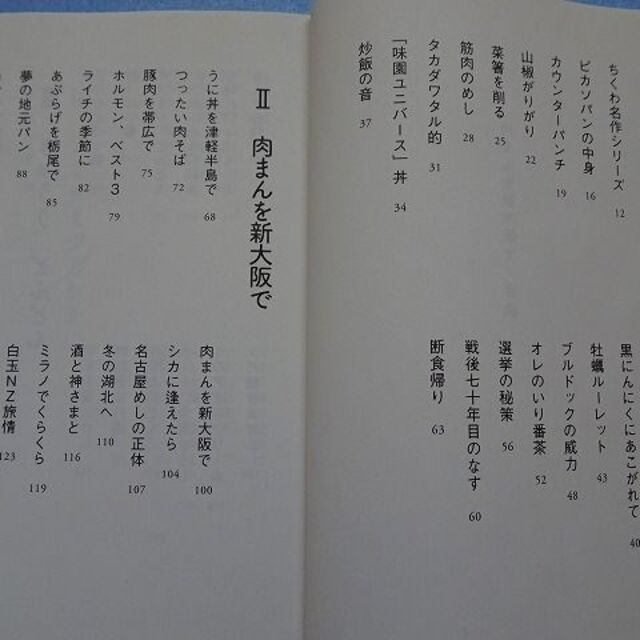 ちくわ名作シリーズ 12
ピカソパンの中身 16
カウンターパンチ 19
山椒がりがり 22
菜箸を削る 25
筋肉のめし 28
タカダワタル的 31
「味園ユニバース」丼 34
炒飯の音 37
黒にんにくにあこがれて 40
牡蠣ルーレット 43
ブルドックの威力 48
オレのいり番茶 52
選挙の秘策 56
戦後七十年目のなす 60
断食帰り 63
Ⅱ 肉まんを新大阪で
うに丼を津軽半島で 68
つったい肉そば 72
豚肉を帯広で 75
ホルモン、ベスト3 79
ライチの季節に 82
あぶらげを栃尾で 85
夢の地元パン 88
肉まんを新大阪で 100
シカに逢えたら 104
名古屋めしの正体 107
冬の湖北へ 110
酒と神さまと 116
ミラノでくらくら 119
白玉NZ旅情 123